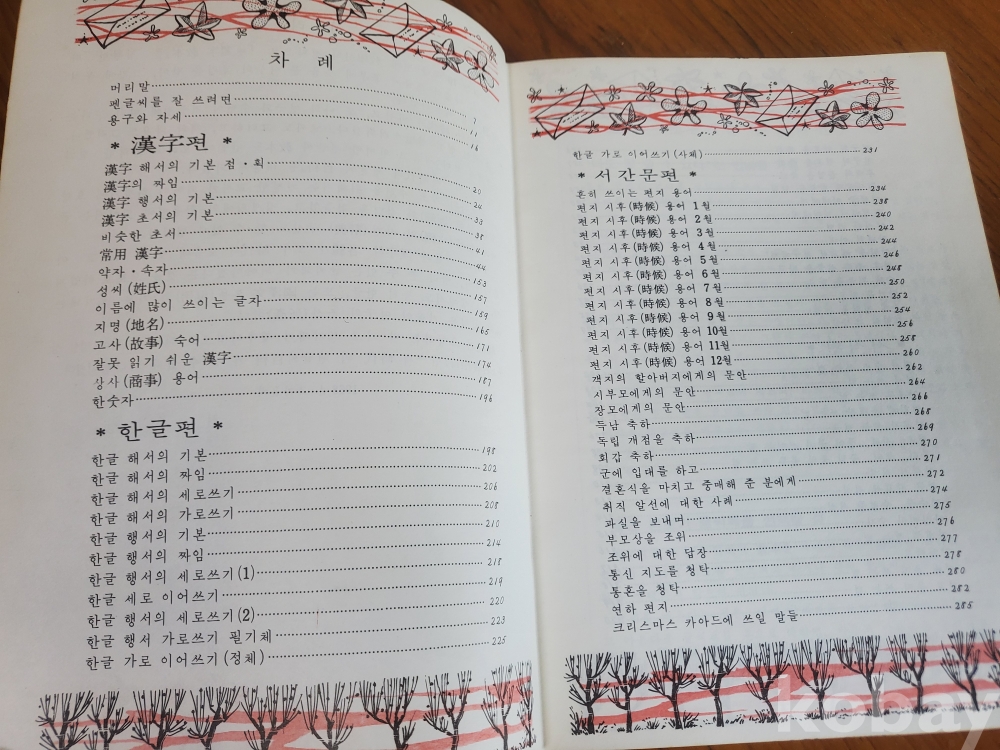 차 례
머리말
펜글씨를 잘 쓰려면 7
용구와 자세 11
* 漢字편 * 16
漢字 해서의 기본 점·획
漢字의 짜임 20
漢字 행서의 기본 24
漢字 초서의 기본 33
비슷한 초서 38
常用 漢字 41
약자·속자 44
성씨(姓氏) 153
이름에 많이 쓰이는 글자 157
지명(地名) 159
고사(故事) 숙어 165
잘못 읽기 쉬운 漢字 171
상사(商事) 용어 174
한숫자 187
196
* 한글편 *
한글 해서의 기본 198
한글 해서의 짜임 202
한글 해서의 세로쓰기 206
한글 해서의 가로쓰기 208
한글 행서의 기본 210
한글 행서의 짜임 214
한글 행서의 세로쓰기(1) 218
한글 세로 이어쓰기 219
한글 행서의 세로쓰기(2) 220
한글 행서 가로쓰기 필기체 223
한글 가로 이어쓰기(정체) 225
한글 가로 이어쓰기(사체) 231
* 서간문편 *
흔히 쓰이는 편지 용어 234
편지 시후(時候) 용어 1월 238
편지 시후(時候) 용어 2월 240
편지 시후(時候) 용어 3월 242
편지 시후(時候) 용어 4월 244
편지 시후(時候) 용어 5월 246
편지 시후(時候) 용어 6월 248
편지 시후(時候) 용어 7월 250
편지 시후(時候) 용어 8월 252
편지 시후(時候) 용어 9월 254
편지 시후(時候) 용어 10월 256
편지 시후(時候) 용어 11월 258
편지 시후(時候) 용어 12월 260
객지의 할아버지에게의 문안 262
시부모에게의 문안 264
장모에게의 문안 266
득남 축하 268
독립 개점을 축하 269
회갑 축하 270
군에 입대를 하고 271
결혼식을 마치고 중매해 준 분에게 272
취직 알선에 대한 사례 274
과실을 보내며 275
부모상을 조위 276
조위에 대한 답장 277
통신 지도를 청탁 278
통혼을 청탁 280
연하 편지 282
크리스마스 카아드에 쓰일 말들 285
kobay